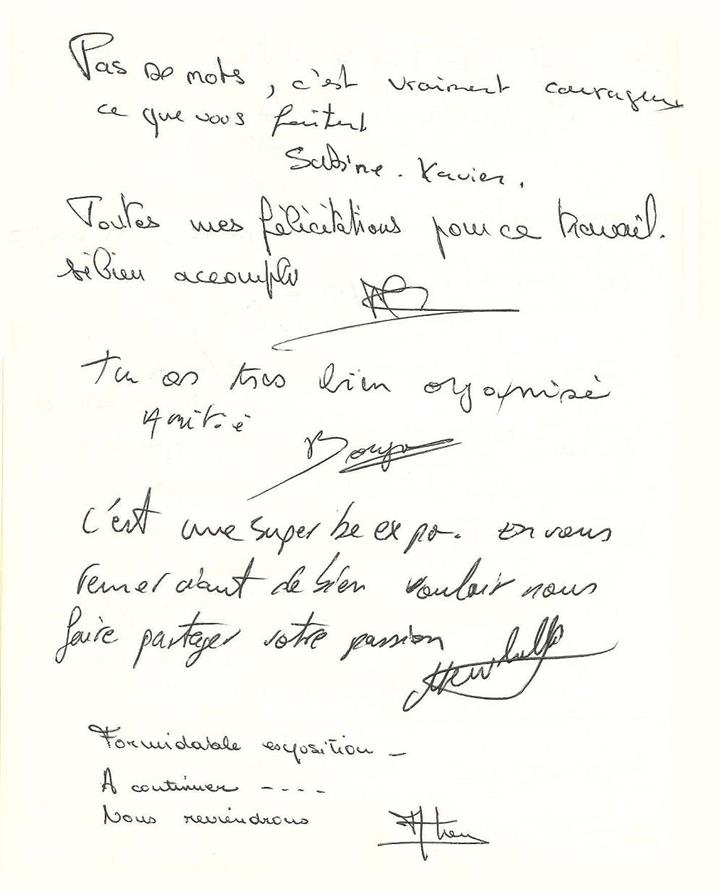 Pas de mots, c'est vraiment courageux
ce que vous faites
Sabine. Xavier.
Toutes mes félicitations pour ce travail.
si bien accompli
Tu as très bien organisé
Amitié
c'est une superbe expo. En vous
remerciant de bien vouloir nous
faire partager votre passion
Formidable exposition -
A continuer ----
Nous reviendrons